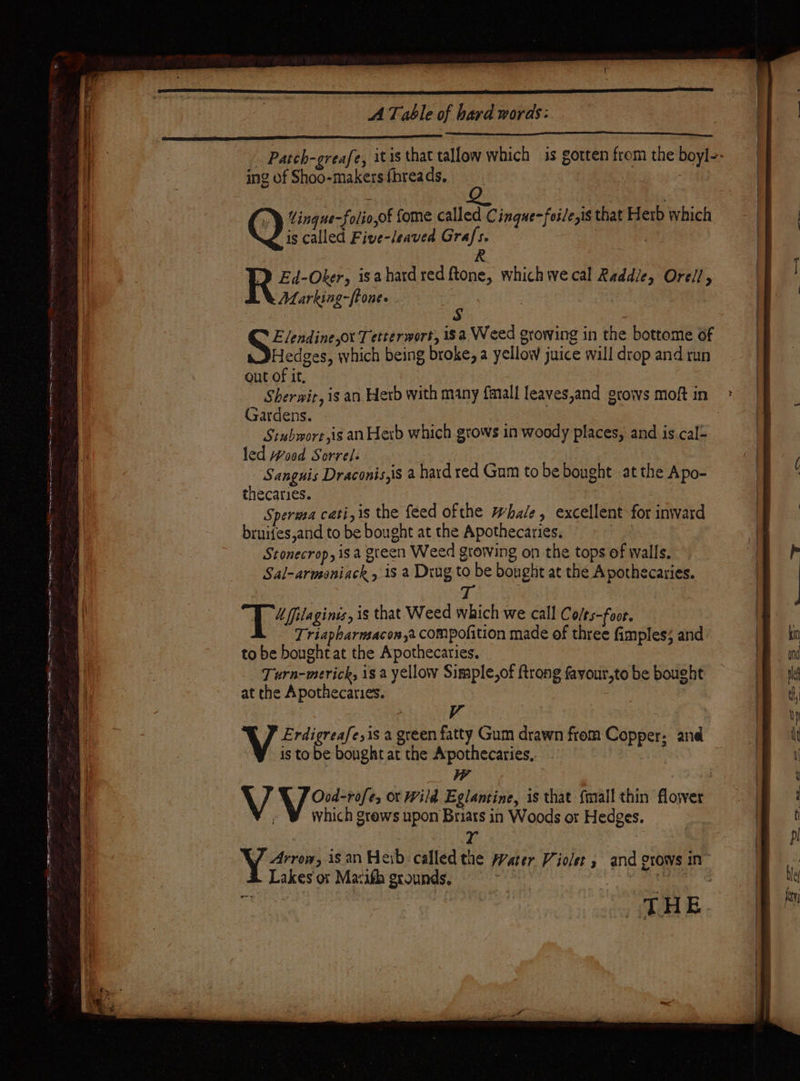 A Table of hard words:
Patch-greaſe, it is that tallow which is gotten from the boyl-
ing of Shoo-makers ſhreads.
Q
QUinque-folio,of ſome called Cinque-foile,is that Herb which
is called Five-leaved Graſs.
R
REd-Oker, is a hard red ſtone, which we cal Raddle, Orell,
Marking-ſtone.
S
SElendine,or Tetterwort, is a Weed growing in the bottome of
Hedges, which being broke, a yellow juice will drop and run
out of it.
Sherwit, is an Herb with many ſmall leaves,and grows moſt in
Gardens.
Stubwort,is an Herb which grows in woody places, and is cal-
led Wood Sorrel.
Sanguis Draconis,is a hard red Gum to be bought at the Apo-
thecaries.
Sperma ceti,is the ſeed of the Whale, excellent for inward
bruiſes,and to be bought at the Apothecaries.
Stonecrop, is a green Weed growing on the tops of walls.
Sal-armoniack, is a Drug to be bought at the Apothecaries.
T
TUſſilaginis, is that Weed which we call Colts-foot.
Triapharmacon,a compoſition made of three ſimples; and
to be bought at the Apothecaries.
Turn-merick, is a yellow Simple,of ſtrong ſavour,to be bought
at the Apothecaries.
V
VErdigreaſe,is a green fatty Gum drawn from Copper; and
is to be bought at the Apothecaries.
W
WOod-roſe, or Wild Eglantine, is that ſmall thin flower
which grows upon Briars in Woods or Hedges.
Y
YArrow, is an Herb called the Water Violet, and grows in
Lakes or Mariſh grounds.
THE